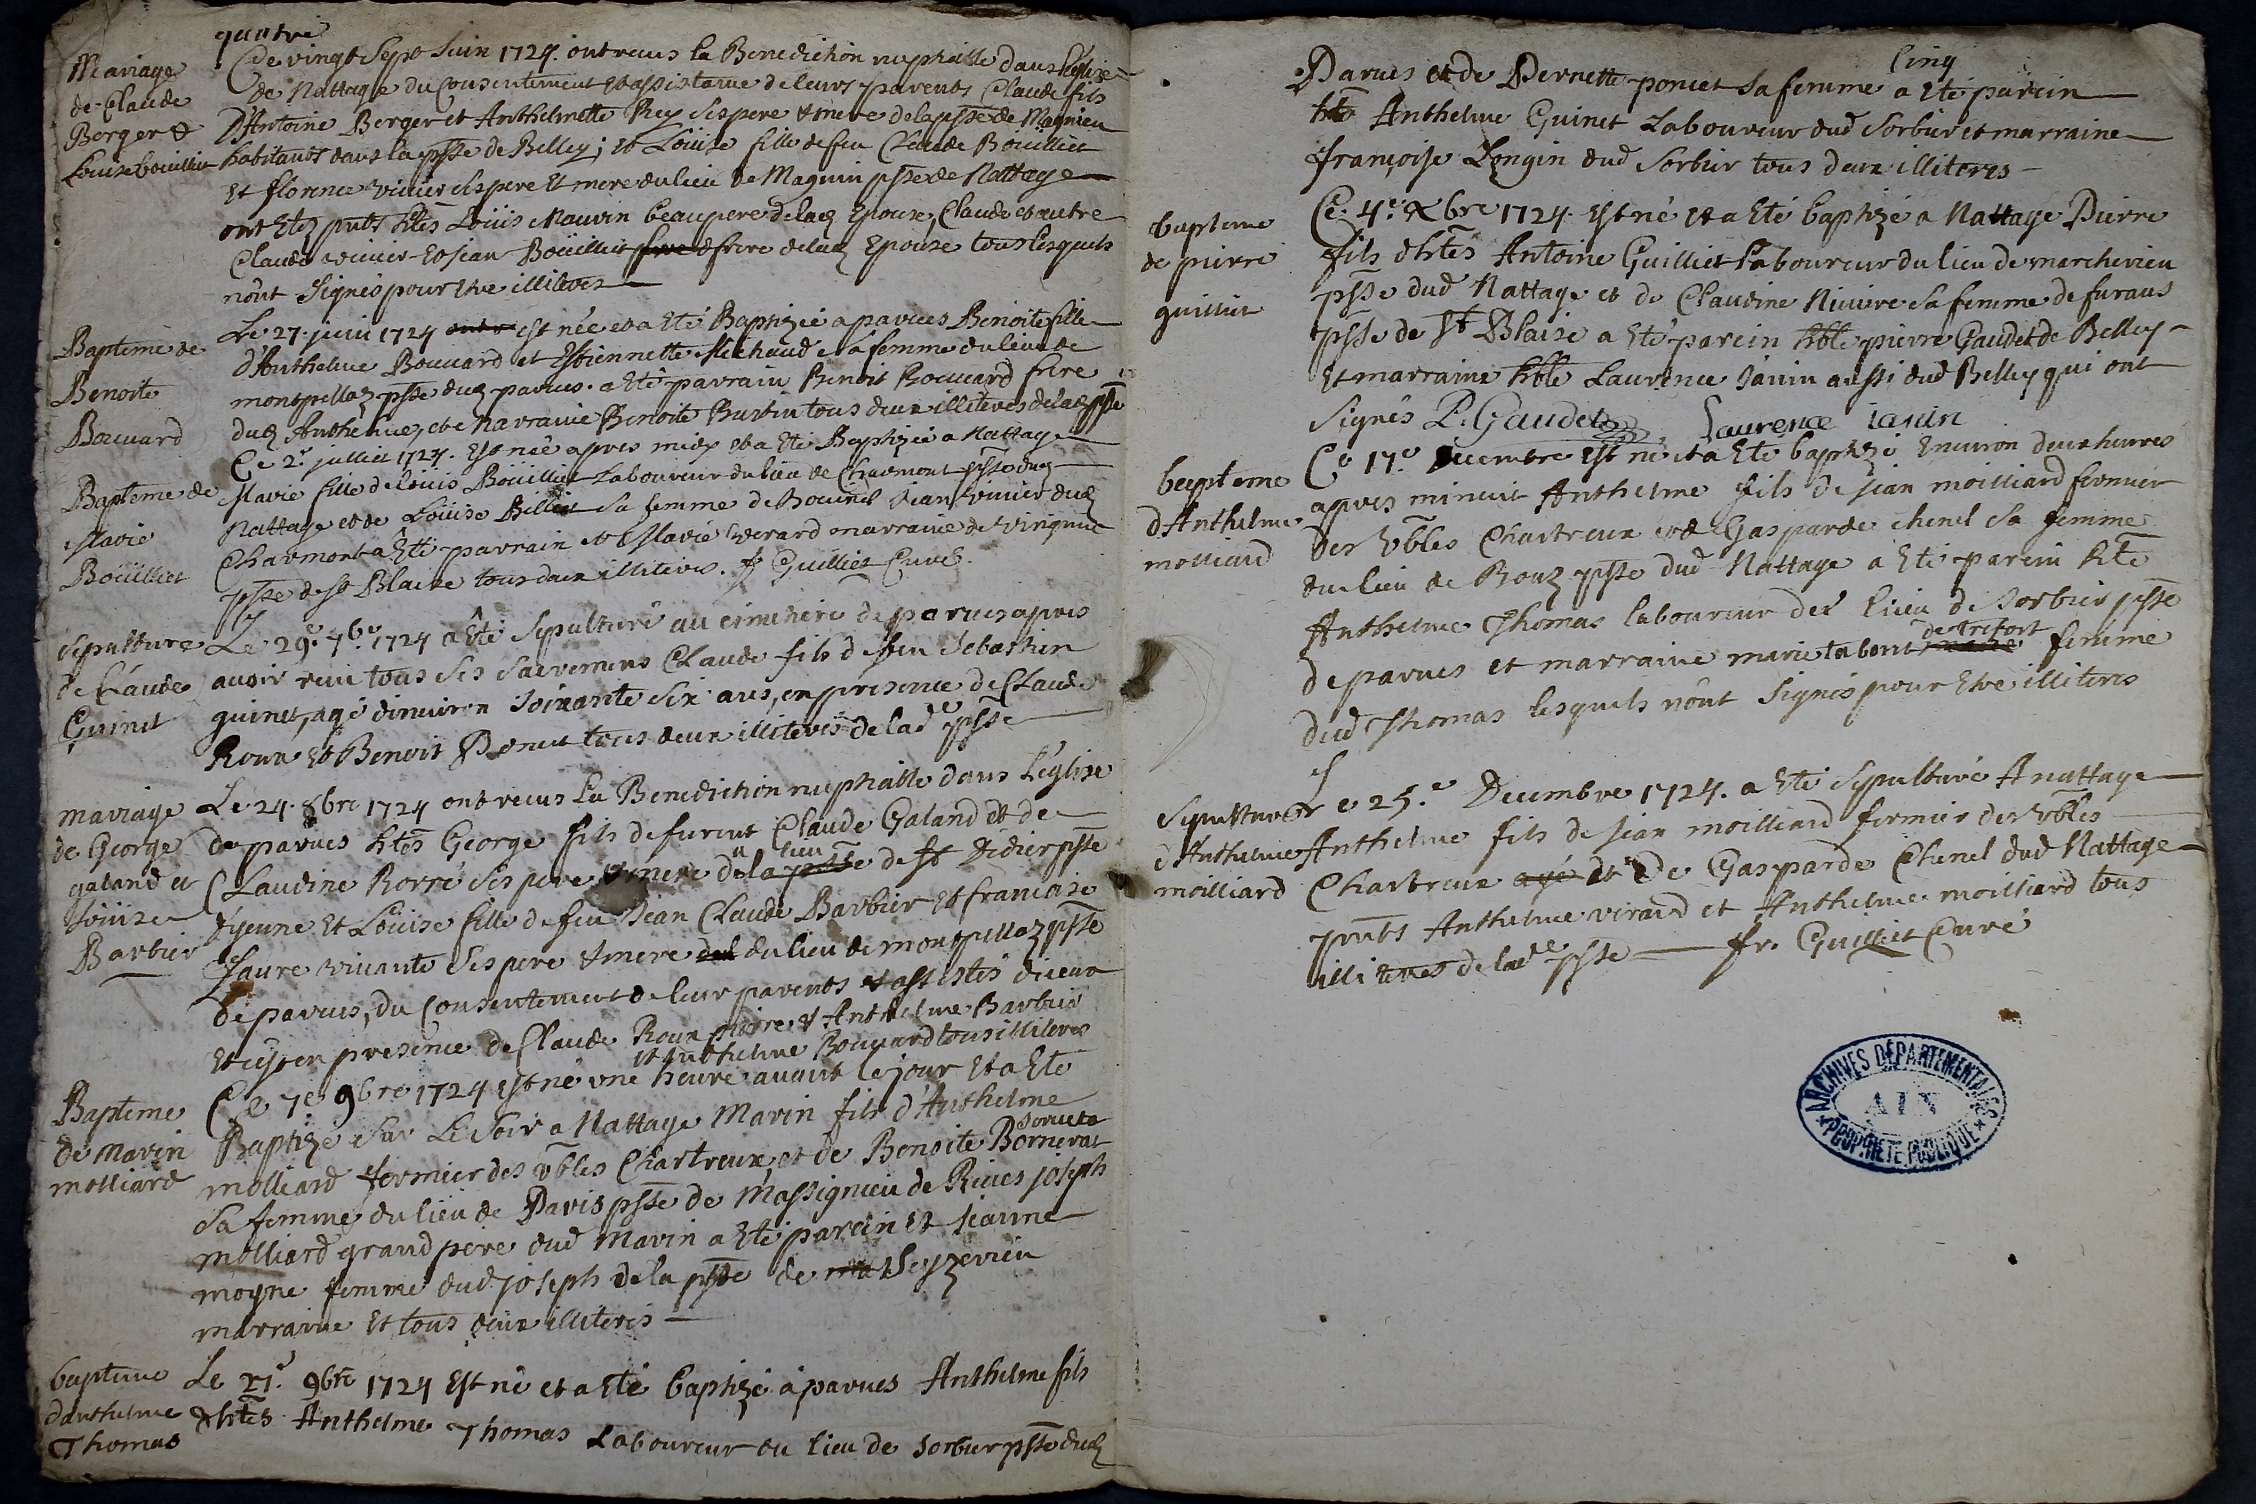 quatre
Mariage
de Claude
Berger &
Louise bouilliet
Ce vingt Sept Juin 1724. ont recus la Benediction nuptialle dans l'Eglise
de Nattage du Consentement et assistance de leurs parents Claude fils
D'Antoine Berger et Anthelmette Rey ses pere & mere de la psse de Magnieu
habitants dans la psse de Belley; et Loüise fille de feu Claude Boüilliet
et florence vivier ses pere et mere du lieu de Magnin psse de Nattage
ont Etez pnts htes Loüis Mauvin beaupere de lad Epouse, Claude et autre
Claude vivier et Jean Boüilliet frere de lad Epouse tous lesquels
n'ont Signés pour Etre illiteres
Bapteme de
Benoite
Bouvard
Le 27. juin 1724 est née et a Eté Baptizée a parves Benoite fille
d'Anthelme Bouvard et Estiennette Michaud sa femme du lieu de
montpellaz psse dud parves. a eté parrain Benoit Bouvard frere
dud Anthelme, et marraine Benoite Burtin tous deux illiteres de lad psse
Bapteme de
Marie
Boüilliet
Ce 2e. juillet 1724. Est née apres midy et a Eté Baptizée a Nattage
Marie fille de Loüis Boüilliet Laboureur du lieu de Charmont psse dud
Nattage et de Loüise Billiet sa femme de Jean vivier dud
Charmont a Eté parrain et Marie verard marraine de virignin
psse de St Blaise tous deux illiteres. fr Guilliet Curé.
sepulture
de Claude
Guinet
Le 29e. 7bre 1724 a Eté Sepulturé au cimetiere de parves apres
avoir recu tous ses sacremens Claude fils de feu Sebastien
guinet, agé d'environ Soixante Six ans, en presence de Claude
Roux et Benoit Poncet tous deux illiteres de lade psse
mariage
de George
galand et
Loüize
Barbier
Le. 24. 8bre 1724 ont recus La Benediction nuptialle dans L'eglise
de parves htes George fils de furent Claude Galand et de
Claudine Borré ses pere & mere du lieu de St Didier psse
d'yenne et Loüise fille de feu Jean Claude Barbier et francoise
faure vivante ses pere & mere du lieu de montpellaz psse
de parves, du Consentement de leur parents et assistés d'iceux
et en presence de Claude Roux pierre & Anthelme Barbier
et Anthelme Bouvard tous illiteres
Bapteme
de Marin
molliard
Ce 7e 9bre 1724 est né une heure avant le jour et a Eté
Baptizé Sur Le Soir a Nattage Marin fils d'Anthelme
molliard fermier des vbles Chartreux, et de Benoite Bornerat
Sa femme du lieu de Paris psse de Massignieu de Rives joseph
molliard grand pere dud Marin a Eté parein et jeanne
moyne femme dud joseph de la psse de Seyzerieu
marraine et tous deux illiteres
bapteme
d'anthelme
Thomas
Le 21e. 9bre 1724 est né et a Eté baptizé a parves Anthelme fils
d'htes Anthelme Thomas Laboureur du lieu de Sorbier psse dud
Cinq
Parves et de Pernette poncet Sa femme a Eté parein
hte Anthelme Guinet Laboureur dud Sorbier et marraine
françoise Longin dud Sorbier tous deux illiteres
bapteme
de pierre
guilliet
Ce. 4e. Xbre 1724. est né et a Eté baptizé a Nattage Pierre
fils d'htes Antoine Guilliet laboureur du lieu de marchevieu
psse dud Nattage et de Claudine Niviere sa femme de furans
psse de St Blaise a Eté parein hble pierre Gaudet de Belley
et marraine hble Laurence Janin aussi dud Belley qui ont
Signés P. Gaudet Laurence ianin
bapteme
d'Anthelme
molliard
Ce 17e Decembre est né et a Eté baptizé Environ deux heures
apres minuit Anthelme fils de jean moilliard fermier
des vbles Chartreux et de Gasparde chenel Sa femme
du lieu de Rouz psse dud Nattage a Eté parein hte
Anthelme Thomas laboureur du lieu de Sorbier psse
de parves et marraine marie tabont de trefort femme
dud Thomas lesquels n'ont Signés pour Etre illiteres
Sepulture
d'Anthelme
moilliard
Le 25.e Decembre 1724. a Eté Sepulturé A nattage
Anthelme fils de jean moilliard fermier des vbles
Chartreux et de Gasparde Chenel dud Nattage
pnts Anthelme virard et Anthelme moilliard tous
illiteres de lade psse fr. Guilliet Curé
ARCHIVES DÉPARTEMENTALES
AIN
PROPRIÉTÉ PUBLIQUE